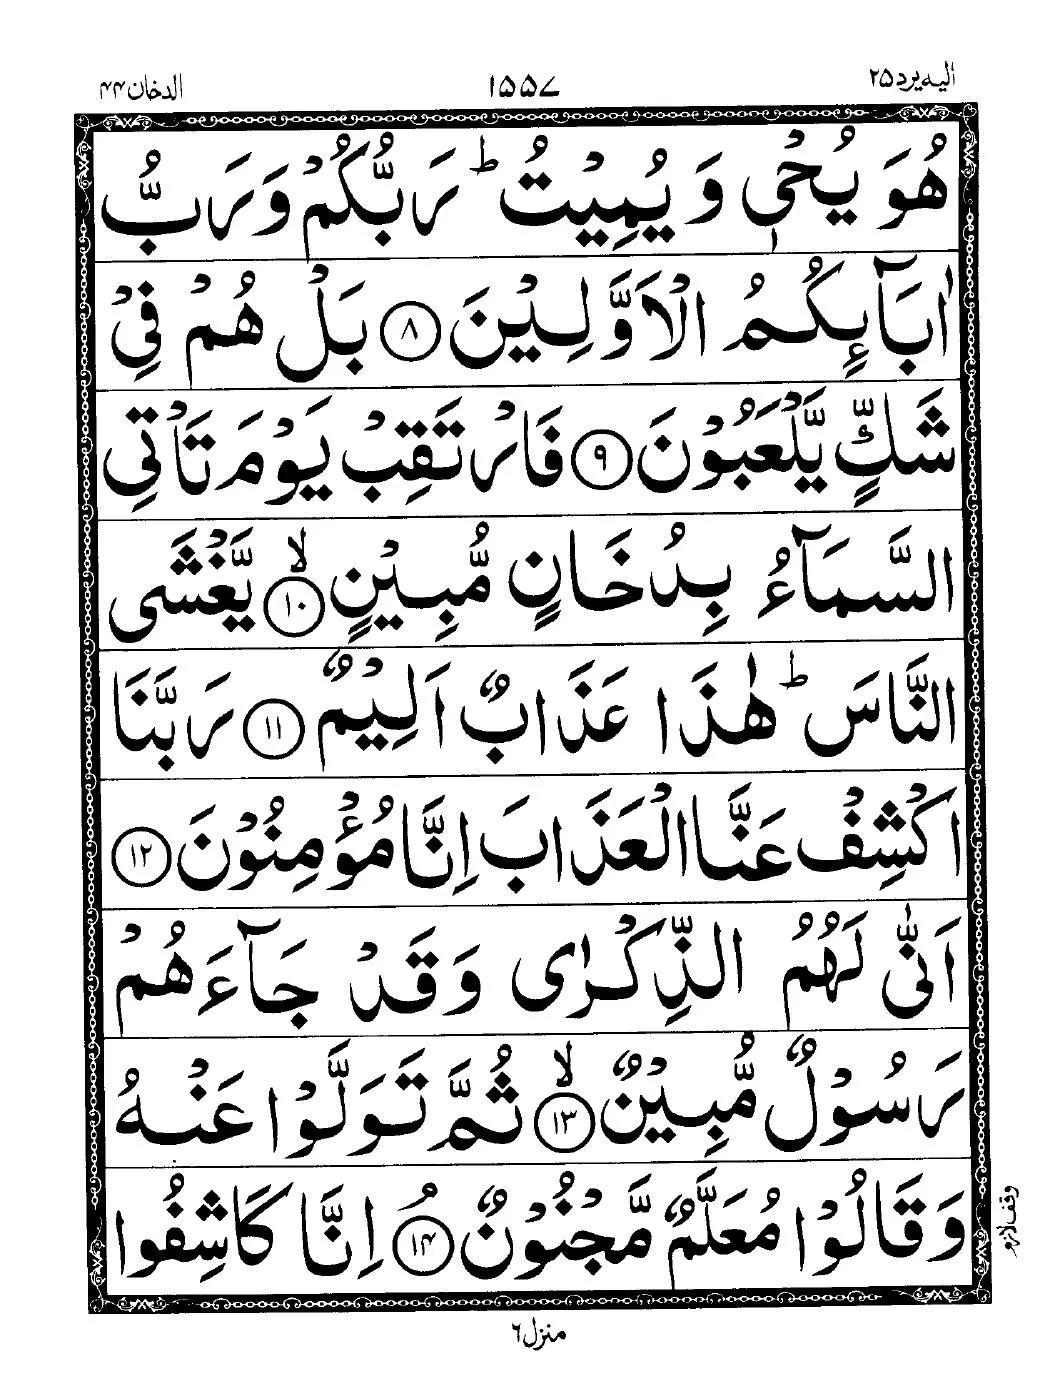 الدخان ۴۴
۱۵۵۷
الیه یرد ۲۵
هُوَ يُحْيٖ وَ يُمِيْتُ ؕ رَبُّكُمْ وَ رَبُّ
اٰبَآىِٕكُمُ الْاَوَّلِيْنَ ۸ بَلْ هُمْ فِيْ
شَكٍّ يَّلْعَبُوْنَ ۹ فَارْتَقِبْ يَوْمَ تَاْتِي
السَّمَآءُ بِدُخَانٍ مُّبِيْنٍ ۙ ۱۰ يَّغْشَى
النَّاسَ ؕ هٰذَا عَذَابٌ اَلِيْمٌ ۱۱ رَبَّنَا
اكْشِفْ عَنَّا الْعَذَابَ اِنَّا مُؤْمِنُوْنَ ۱۲
اَنّٰى لَهُمُ الذِّكْرٰى وَ قَدْ جَآءَهُمْ
رَسُوْلٌ مُّبِيْنٌ ۙ ۱۳ ثُمَّ تَوَلَّوْا عَنْهُ
وَ قَالُوْا مُعَلَّمٌ مَّجْنُوْنٌ ۘ ۱۴ اِنَّا كَاشِفُوا
وقف لازم
منزل ۶